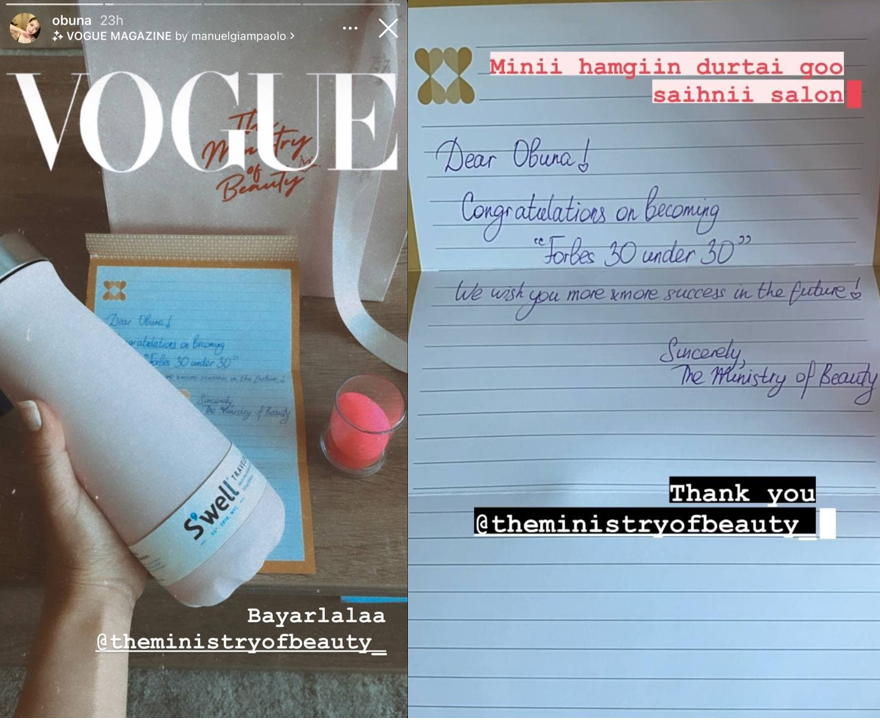 obuna 23h
VOGUE MAGAZINE by manuelgiampaolo >
VOGUE
The
Ministry
of
Beauty
Dear Obuna!
Congratulations on becoming
"Forbes 30 under 30"
Sincerely,
The Ministry of Beauty
S'well
TRAVEL
Bayarlalaa
@theministryofbeauty_
Minii hamgiin durtai goo
saihnii salon
Dear Obuna!
Congratulations on becoming
"Forbes 30 under 30"
We wish you more & more success in the future!
Sincerely,
The Ministry of Beauty
Thank you
@theministryofbeauty_